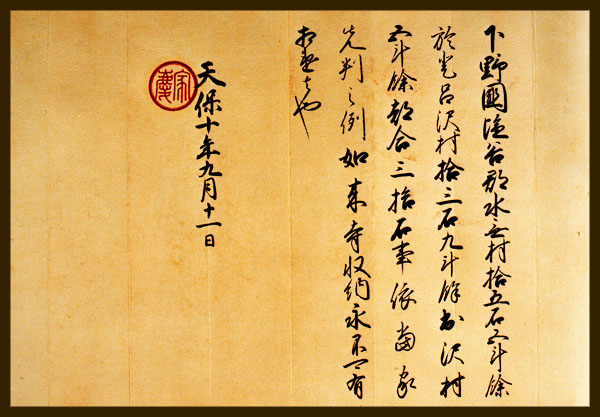 下野國塩谷郡水無村拾五石五斗餘
於呂沢村拾三石九斗餘沢村
五斗餘都合三拾石事依當家
先判之例如来寺収納永不可有
相違者也
天保十年九月十一日
家慶